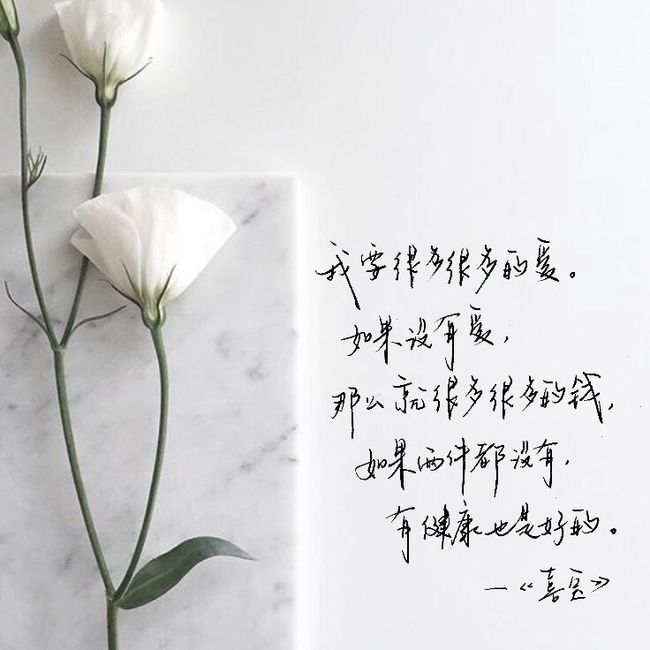 我要很多很多的爱。
如果没有爱，
那么就很多很多的钱，
如果两件都没有，
有健康也是好的。
—《喜宝》